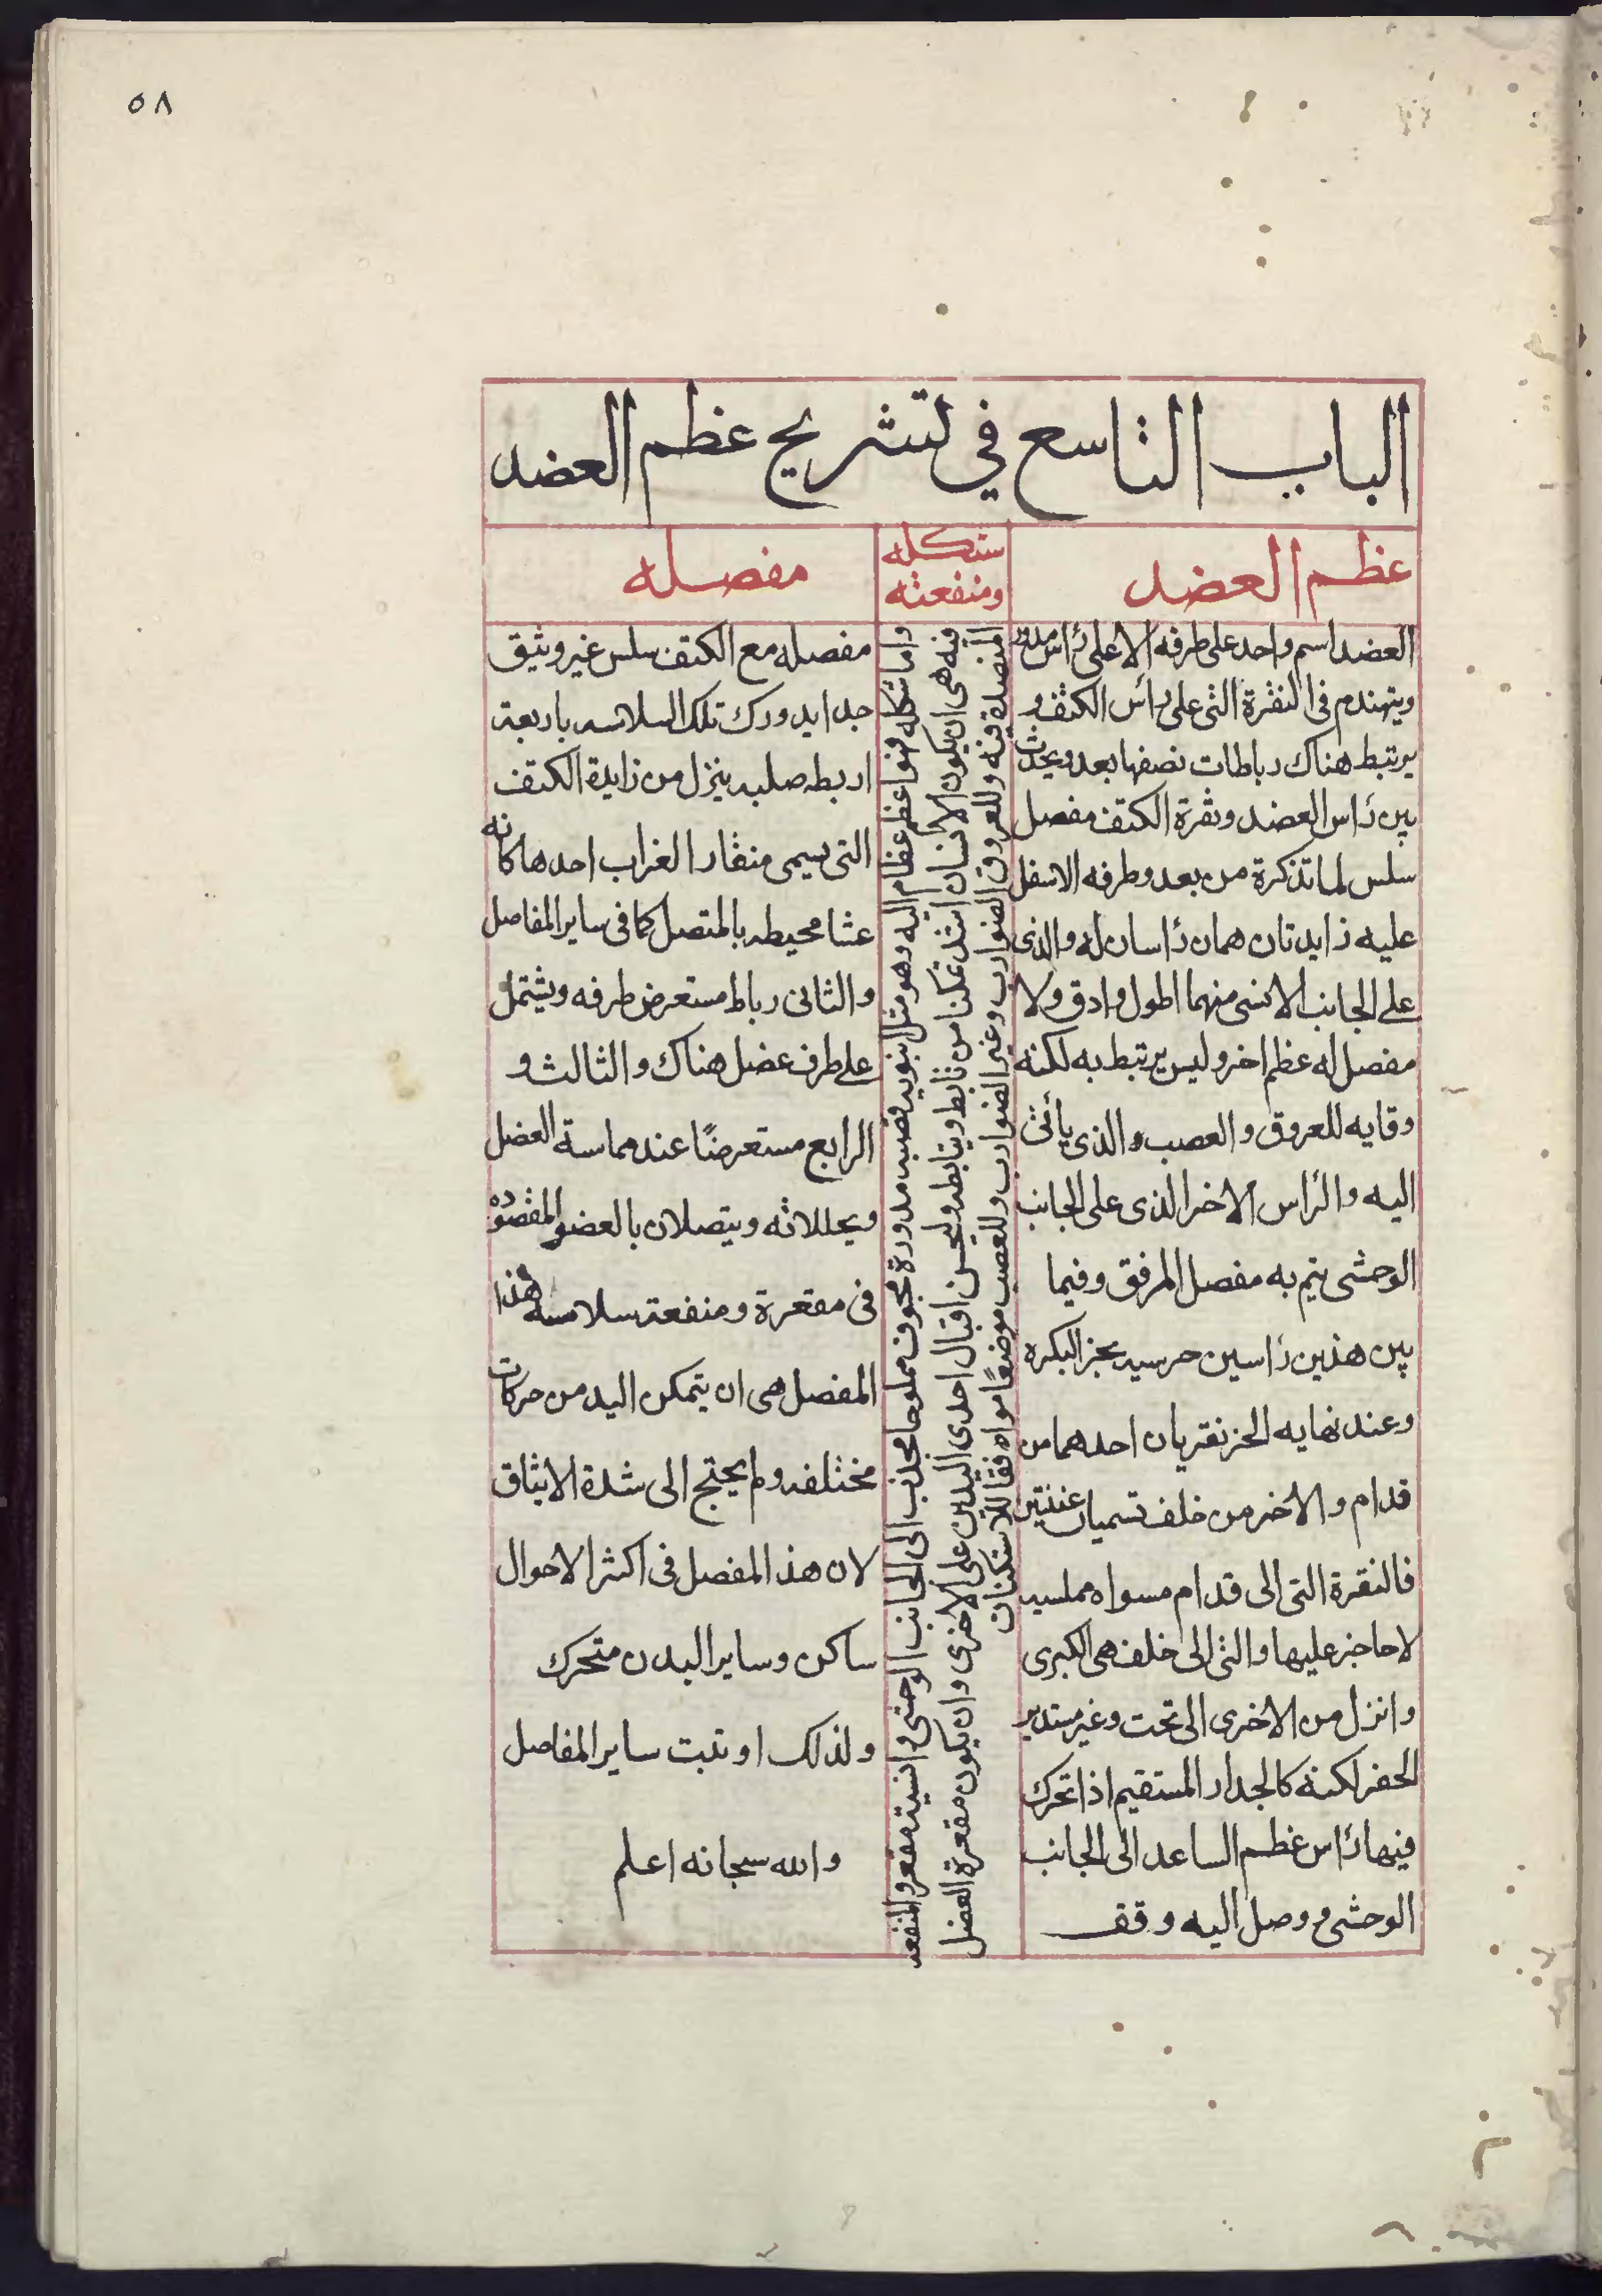 ٥٨
الباب التاسع في تشريح عظم العضد
عظم العضد
العضد اسم واحد على طرفه الاعلى رأس مدور
ويتهندم فى النقرة التى على رأس الكتف و
يرتبط هناك رباطات نصفها بعد ويحدث
بين رأس العضد ونقرة الكتف مفصل
سلس لما تذكرة من بعد وطرفه الاسفل
عليه زايدتان همان رأسان له والذى
على الجانب الانسى منهما اطول وادق ولا
مفصل له عظم اخر وليس يرتبط به لكنه
وقايه للعروق والعصب والذى ياتى
اليه والرأس الاخر الذى على الجانب
الوحشى يتم به مفصل المرفق وفيما
بين هذين رأسين حر سيه بحز البكره
وعند نهايه الحز نقريان احدهما من
قدام والاخر من خلف تسميان عننتين
فالنقرة التى الى قدام مسواه مملسه
لا حاجز عليها والتى الى خلف هى الكبرى
وانزل من الاخرى الى تحت وغير مستدير
الحفر لكنه كالجدار المستقيم اذا تحرك
فيها رأس عظم الساعد الى الجانب
الوحشى ووصل اليه وقف
شكله
ومنفعته
واما شكله فهو اعظم عظام اليه وهو مثل انبوبه قصبه مدورة مجوف مملو حا محدب الى الجانب الوحشى وانسيته مقعر والمنفعه
فيه هى ان يكون الانسان اشد تمكنا من تابط ويتابطه وليحسن اقبال احدى اليدين على الاخرى وان يكون مقعرة العضل
المنضدة فيه وللعروق الضوارب وغير الضوارب وللعصب موضعًا مواه فقا للاستكنان
مفصله
مفصله مع الكتف سلس غير وثيق
جدا يدورك تلك السلاسه باربعة
اربطه صلبه ينزل من زايدة الكتف
التى يسمى منقار الغراب احدها كانه
عشا محيطه بالمتصل كما فى ساير المفاصل
والثانى رباط مستعرض طرفه ويشتمل
على طرف عضل هناك والثالث و
الرابع مستعرضًا عند مماسة العضل
ويحللاته ويتصلان بالعضو المقصوده
فى مقعرة ومنفعة سلاسه هذا
المفصل هى ان يتمكن اليد من حركات
مختلفه ولم يحتج الى شدة الايثاق
لان هذا المفصل فى اكثر الاحوال
ساكن وساير البدن متحرك
ولذلك اوثبت ساير المفاصل
والله سبحانه اعلم